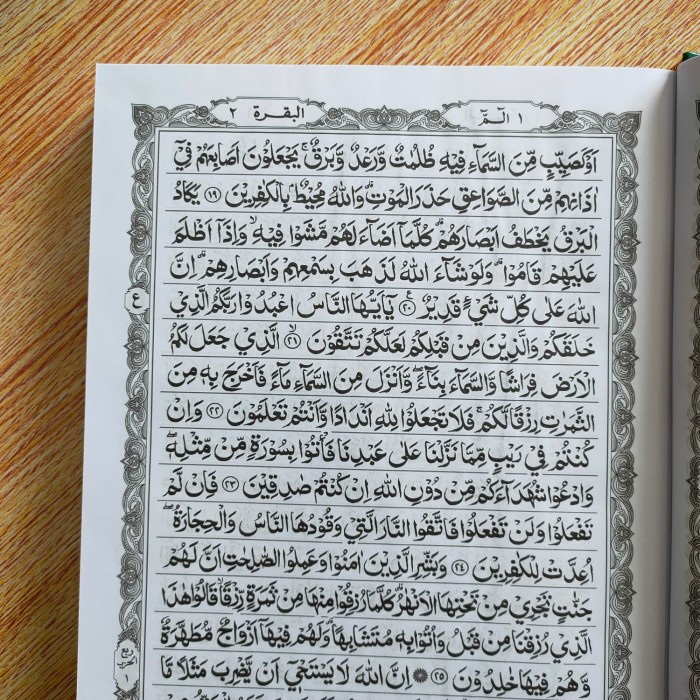 ١ الٓمّٓ
البقرة ٢
اَوْكَصَيِّبٍ مِّنَ السَّمَآءِ فِيْهِ ظُلُمٰتٌ وَّرَعْدٌ وَّبَرْقٌ ۚ يَجْعَلُوْنَ اَصَابِعَهُمْ فِيْٓ
اٰذَانِهِمْ مِّنَ الصَّوَاعِقِ حَذَرَ الْمَوْتِ ۗ وَاللّٰهُ مُحِيْطٌۢ بِالْكٰفِرِيْنَ ١٩ يَكَادُ
الْبَرْقُ يَخْطَفُ اَبْصَارَهُمْ ۗ كُلَّمَآ اَضَآءَ لَهُمْ مَّشَوْا فِيْهِ ۙ وَاِذَآ اَظْلَمَ
عَلَيْهِمْ قَامُوْا ۗ وَلَوْ شَآءَ اللّٰهُ لَذَهَبَ بِسَمْعِهِمْ وَاَبْصَارِهِمْ ۗ اِنَّ
اللّٰهَ عَلٰى كُلِّ شَيْءٍ قَدِيْرٌ ۚ ٢٠ يٰٓاَيُّهَا النَّاسُ اعْبُدُوْا رَبَّكُمُ الَّذِيْ
خَلَقَكُمْ وَالَّذِيْنَ مِنْ قَبْلِكُمْ لَعَلَّكُمْ تَتَّقُوْنَ ۙ ٢١ الَّذِيْ جَعَلَ لَكُمُ
الْاَرْضَ فِرَاشًا وَّالسَّمَآءَ بِنَآءً ۖ وَّاَنْزَلَ مِنَ السَّمَآءِ مَآءً فَاَخْرَجَ بِهٖ مِنَ
الثَّمَرٰتِ رِزْقًا لَّكُمْ ۚ فَلَا تَجْعَلُوْا لِلّٰهِ اَنْدَادًا وَّاَنْتُمْ تَعْلَمُوْنَ ٢٢ وَاِنْ
كُنْتُمْ فِيْ رَيْبٍ مِّمَّا نَزَّلْنَا عَلٰى عَبْدِنَا فَأْتُوْا بِسُوْرَةٍ مِّنْ مِّثْلِهٖ ۖ
وَادْعُوْا شُهَدَآءَكُمْ مِّنْ دُوْنِ اللّٰهِ اِنْ كُنْتُمْ صٰدِقِيْنَ ٢٣ فَاِنْ لَّمْ
تَفْعَلُوْا وَلَنْ تَفْعَلُوْا فَاتَّقُوا النَّارَ الَّتِيْ وَقُوْدُهَا النَّاسُ وَالْحِجَارَةُ ۖ
اُعِدَّتْ لِلْكٰفِرِيْنَ ٢٤ وَبَشِّرِ الَّذِيْنَ اٰمَنُوْا وَعَمِلُوا الصّٰلِحٰتِ اَنَّ لَهُمْ
جَنّٰتٍ تَجْرِيْ مِنْ تَحْتِهَا الْاَنْهٰرُ ۗ كُلَّمَا رُزِقُوْا مِنْهَا مِنْ ثَمَرَةٍ رِّزْقًا ۙ قَالُوْا هٰذَا
الَّذِيْ رُزِقْنَا مِنْ قَبْلُ وَاُتُوْا بِهٖ مُتَشَابِهًا ۗ وَلَهُمْ فِيْهَآ اَزْوَاجٌ مُّطَهَّرَةٌ
وَّهُمْ فِيْهَا خٰلِدُوْنَ ٢٥ ۞ اِنَّ اللّٰهَ لَا يَسْتَحْيٖٓ اَنْ يَّضْرِبَ مَثَلًا مَّا
ع
ربع
الحزب
١